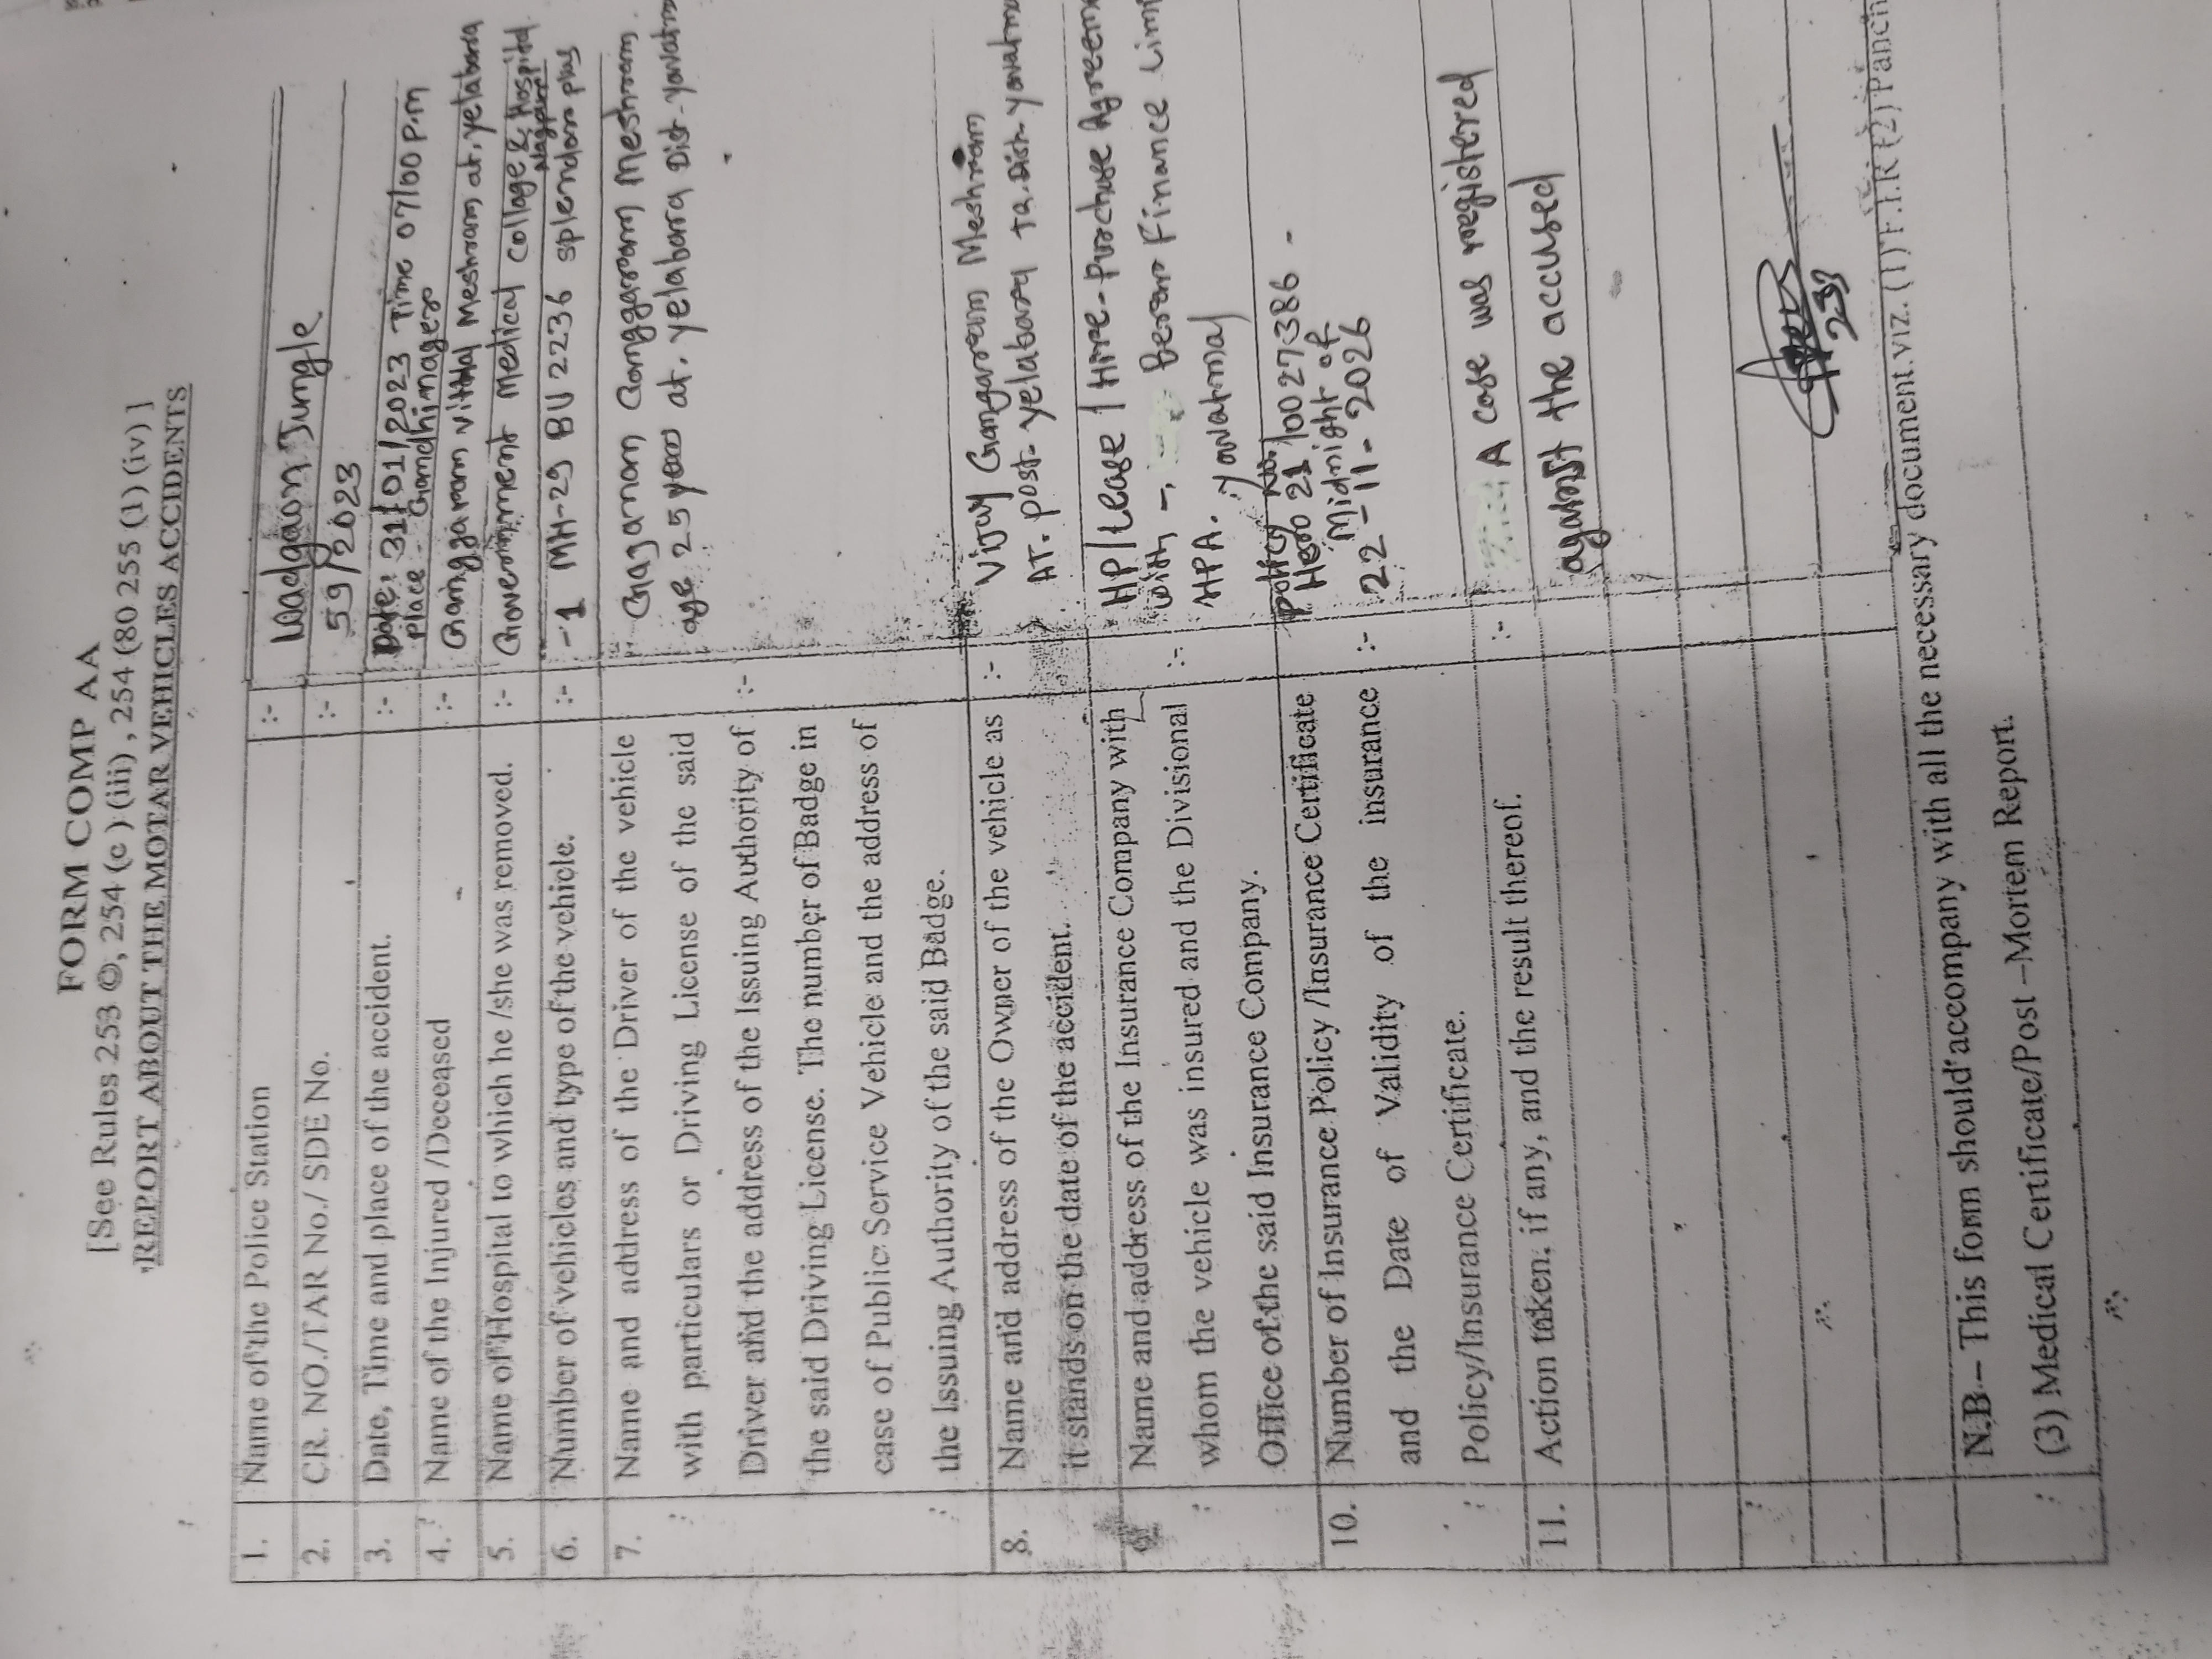 FORM COMP AA
[See Rules 253 ©, 254 (c) (iii), 254 (80 255 (1) (iv) ]
REPORT ABOUT THE MOTAR VEHICLES ACCIDENTS
1. Name of the Police Station :- Wadgaon Jungle
2. CR. NO./TAR No./ SDE No. :- 59/2023
3. Date, Time and place of the accident. :- Date: 31/01/2023 Time 07/00 P.m
place - Gandhinager
4. Name of the Injured /Deceased :- Ganggaram vitthal Meshram at, yelabara
5. Name of Hospital to which he /she was removed. :- Government Medical Collage & Hospital
Nagpur
6. Number of vehicles and type of the vehicle. :- -1 MH-29 BU 2236 splendor plus
7. Name and address of the Driver of the vehicle Gajanan Ganggaram Meshram
with particulars or Driving License of the said age 25 year at. yelabara Dist-yavatm
Driver and the address of the Issuing Authority of :-
the said Driving License. The number of Badge in
case of Public Service Vehicle and the address of
the Issuing Authority of the said Badge.
8. Name and address of the Owner of the vehicle as :- Vijay Gangaram Meshram
it stands on the date of the accident. AT. post- yelabara Ta.Dist-yavatm
Name and address of the Insurance Company with HP/Lease / Hire-Purchase Agreem
whom the vehicle was insured and the Divisional :- with -, Berar Finance Lim
Office of the said Insurance Company. HPA. yavatmal
10. Number of Insurance Policy /Insurance Certificate policy No.
Hero 21/10027386 -
and the Date of Validity of the insurance :- Midnight of
22-11-2026
Policy/Insurance Certificate.
11. Action taken, if any, and the result thereof. :- A case was registered
against the accused
N.B – This form should accompany with all the necessary document.viz. (1) F.I.R (2) Panch
(3) Medical Certificate/Post –Mortem Report.